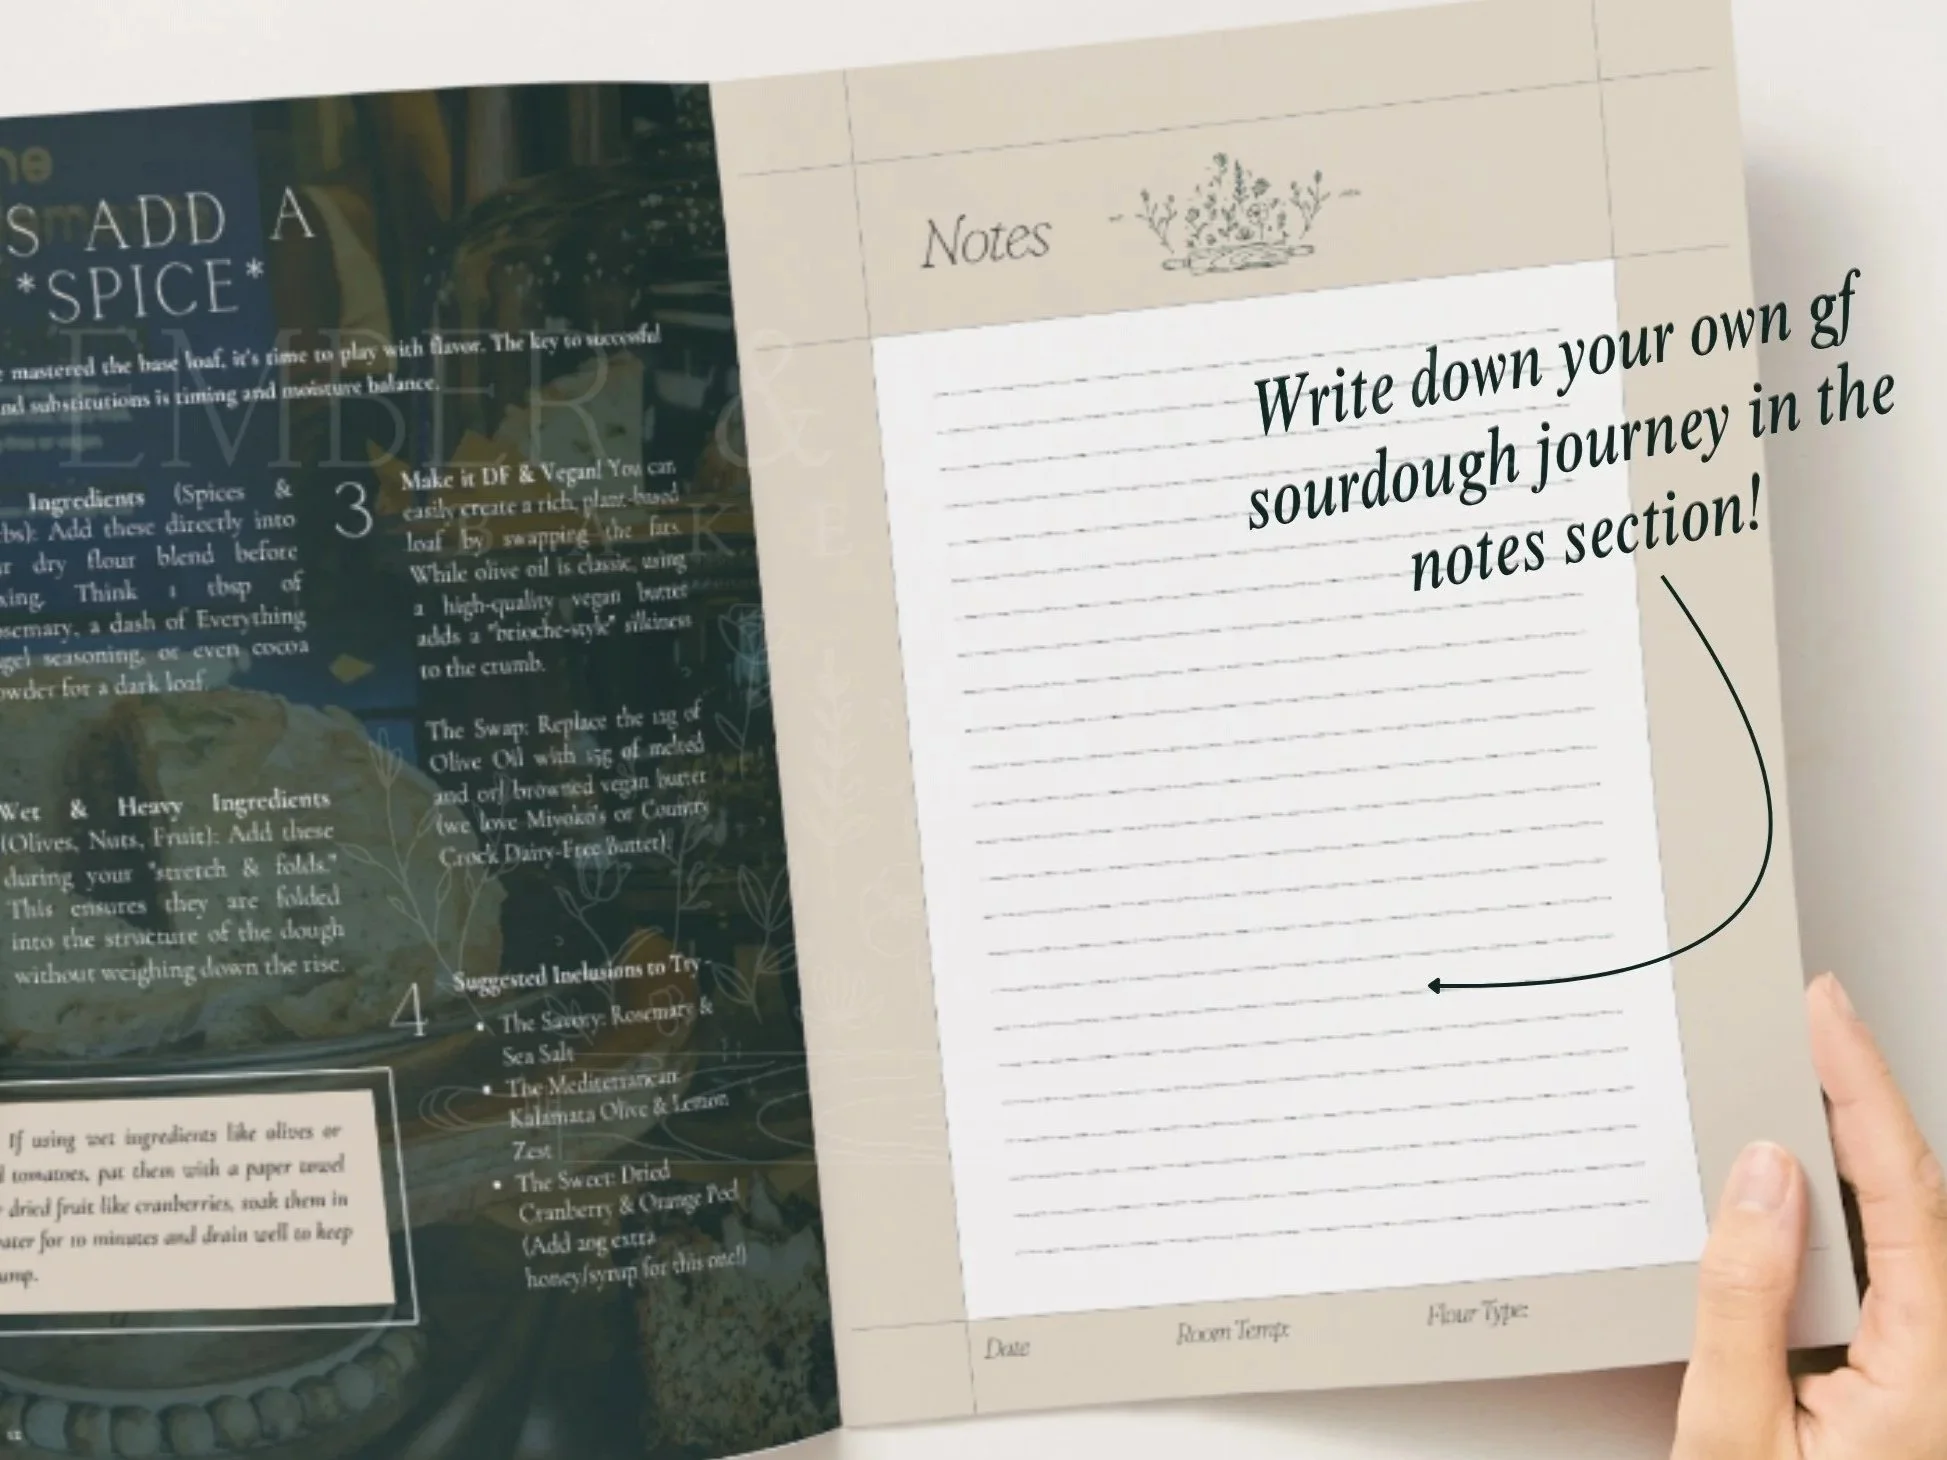 he
S ADD A
*SPICE*
mastered the base loaf, it's time to play with flavor. The key to successful
nd substitutions is timing and moisture balance.
EMBER &
BAKE
Ingredients (Spices &
bs): Add these directly into
r dry flour blend before
xing. Think 1 tbsp of
semary, a dash of Everything
gel seasoning, or even cocoa
owder for a dark loaf.
Wet & Heavy Ingredients
(Olives, Nuts, Fruit): Add these
during your "stretch & folds."
This ensures they are folded
into the structure of the dough
without weighing down the rise.
3
Make it DF & Vegan! You can
easily create a rich, plant-based
loaf by swapping the fats.
While olive oil is classic, using
a high-quality vegan butter
adds a "brioche-style" silkiness
to the crumb.
The Swap: Replace the 12g of
Olive Oil with 15g of melted
and or] browned vegan butter
(we love Miyoko's or Country
Crock Dairy-Free Butter).
4
Suggested Inclusions to Try -
• The Savory: Rosemary &
Sea Salt
• The Mediterranean:
Kalamata Olive & Lemon
Zest
• The Sweet: Dried
Cranberry & Orange Peel
(Add 20g extra
honey/syrup for this one!)
If using wet ingredients like olives or
tomatoes, pat them with a paper towel
dried fruit like cranberries, soak them in
ater for 10 minutes and drain well to keep
ump.
12
Notes
Write down your own gf
sourdough journey in the
notes section!
Date
Room Temp:
Flour Type: